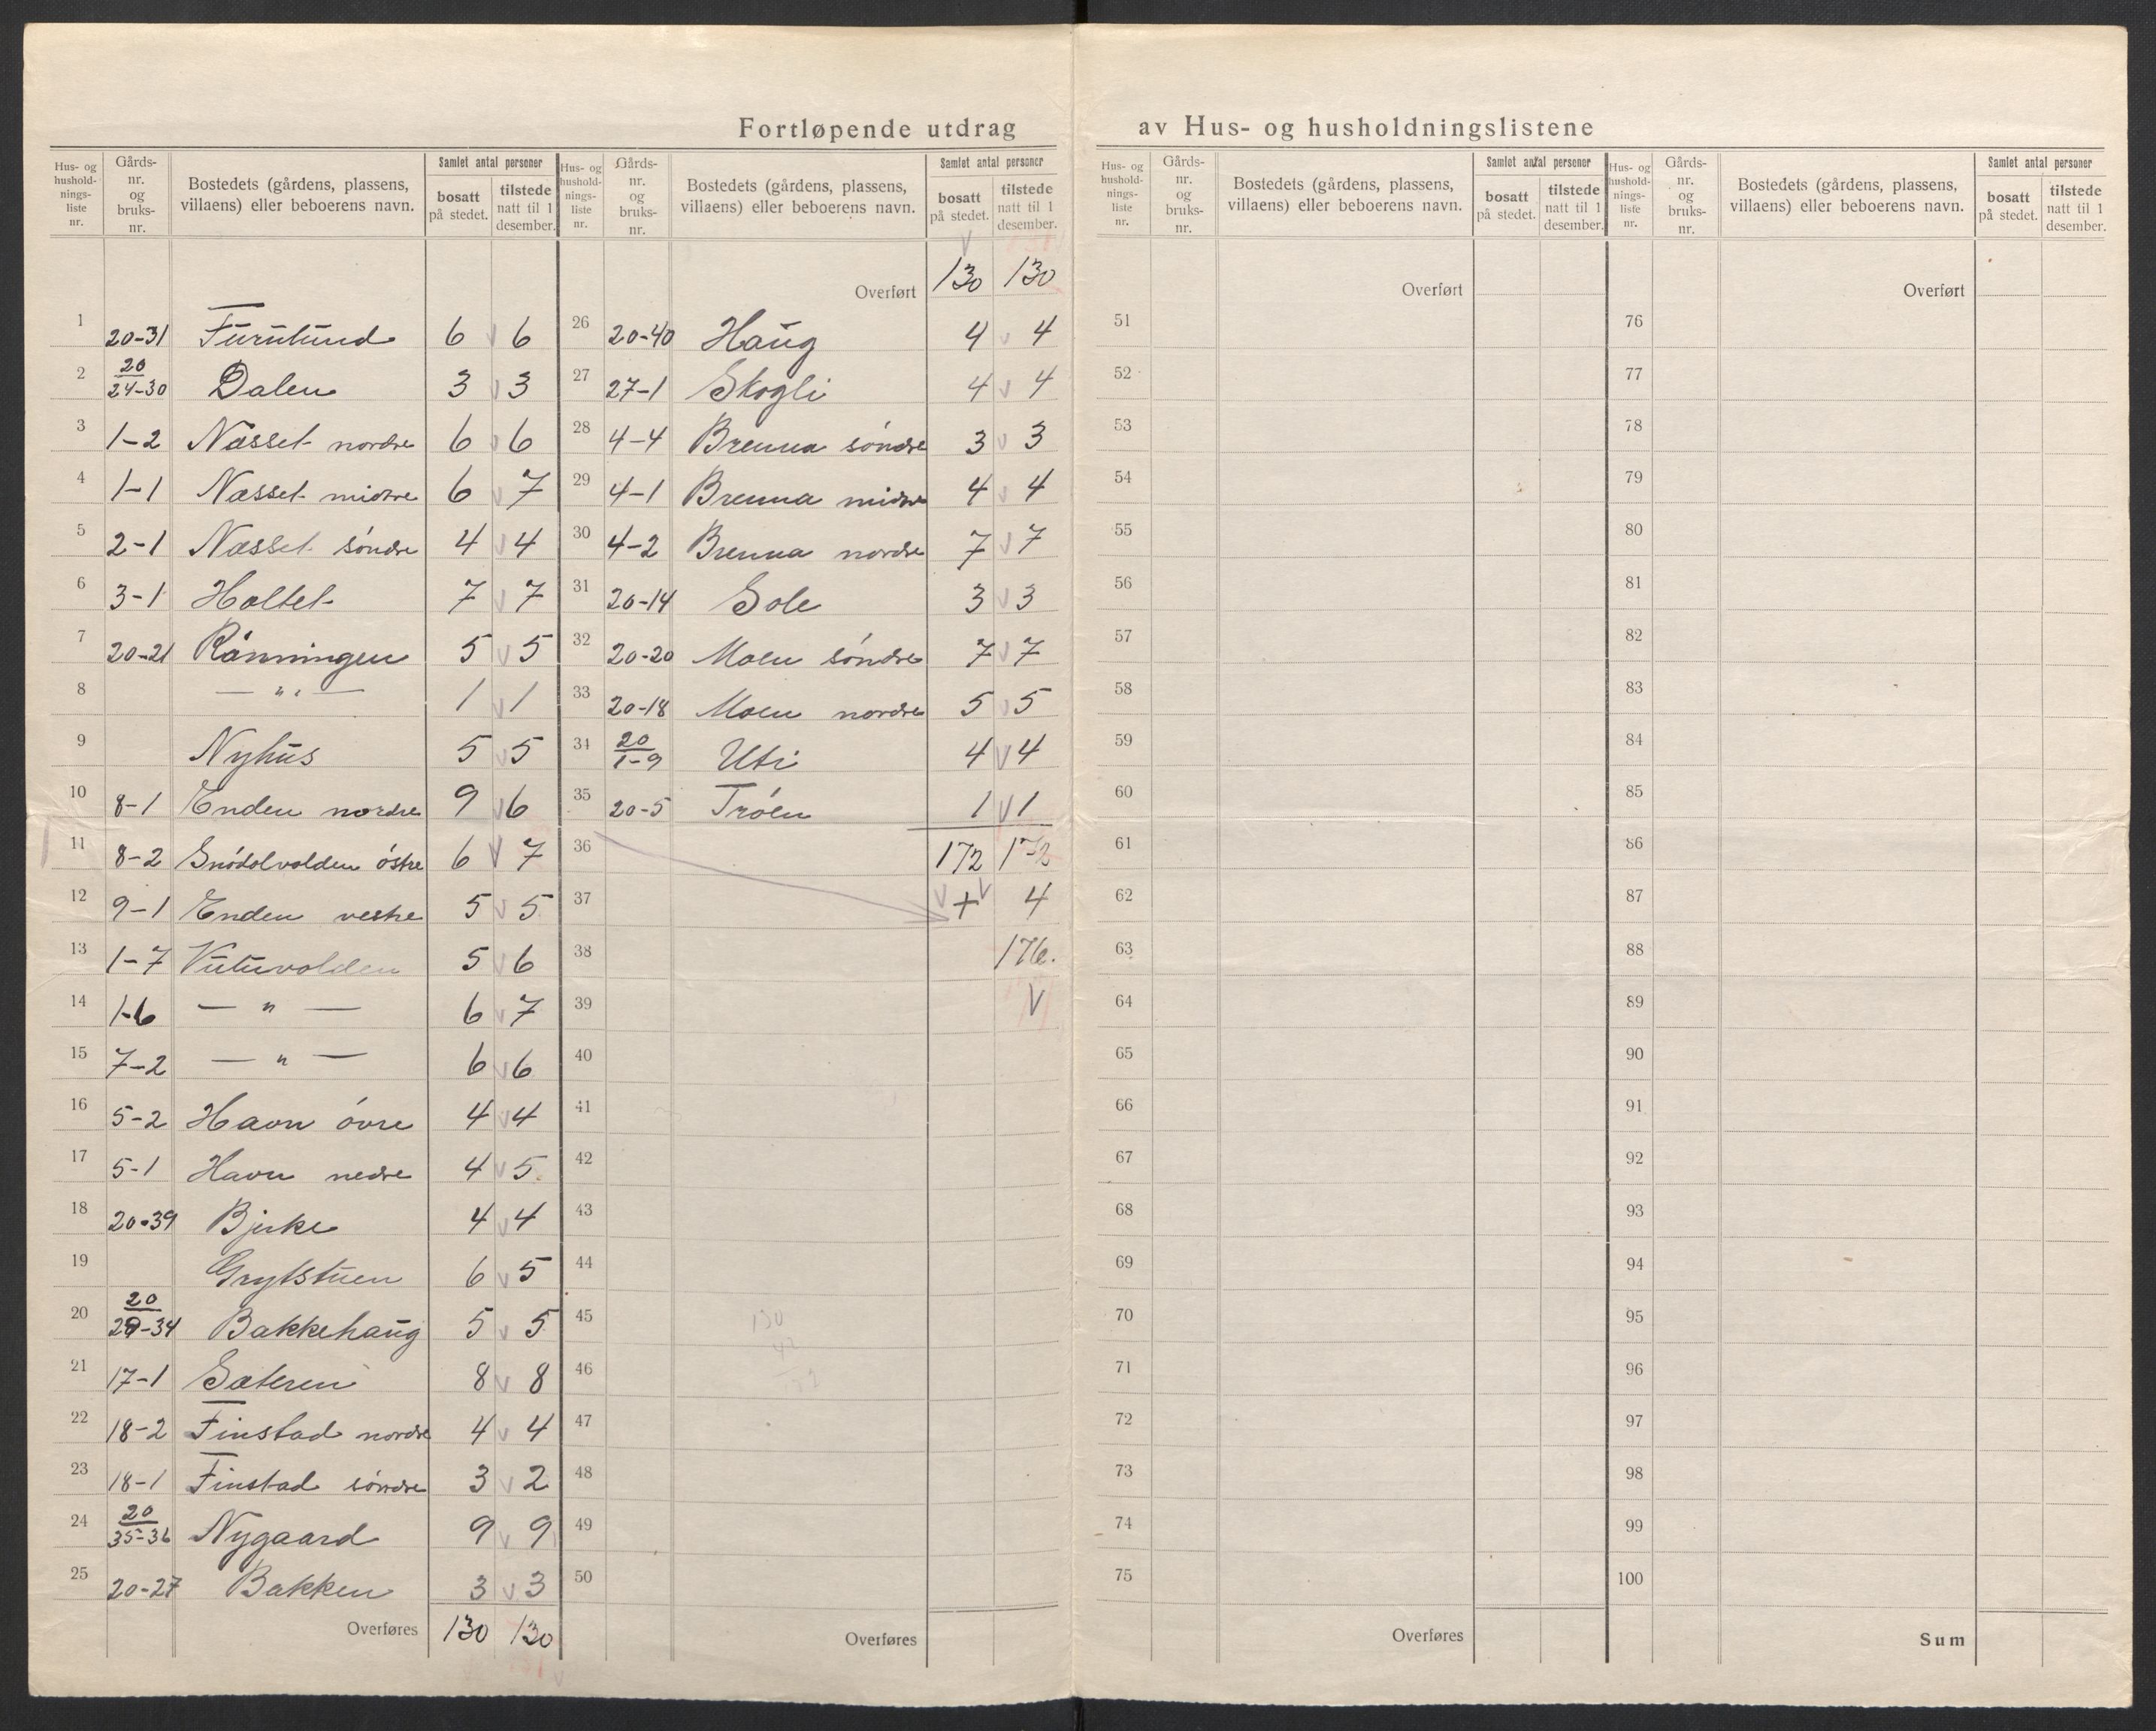 Fortløpende utdrag av Hus- og husholdningslistene
Hus- og husholdnings-liste nr. | Gårds-nr. og bruks-nr. | Bostedets (gårdens, plassens, villaens) eller beboerens navn. | Samlet antal personer | bosatt på stedet. | tilstede natt til 1 desember.
1 20-31 Furulund 6 v 6
2 20/24-30 Dalen 3 v 3
3 1-2 Næsset nordre 6 v 6
4 1-1 Næsset midtre 6 v 7
5 2-1 Næsset söndre 4 v 4
6 3-1 Holtet 7 v 7
7 20-21 Rönningen 5 v 5
8 — " — 1 v 1
9 Nyhus 5 v 5
10 8-1 Enden nordre 9 v 6
11 8-2 Snödolvolden östre 6 v 7
12 9-1 Enden vestre 5 v 5
13 1-7 Vuluvolden 5 v 6
14 1-6 — " — 6 v 7
15 7-2 — " — 6 v 6
16 5-2 Havn övre 4 v 4
17 5-1 Havn nedre 4 v 5
18 20-39 Bjerke 4 v 4
19 Grytstuen 6 v 5
20 20/29-34 Bakkehaug 5 v 5
21 17-1 Sæteren 8 v 8
22 18-2 Finstad nordre 4 v 4
23 18-1 Finstad söndre 3 v 2
24 20/35-36 Nygaard 9 v 9
25 20-27 Bakken 3 v 3
Overføres 130 130
Hus- og husholdnings-liste nr. | Gårds-nr. og bruks-nr. | Bostedets (gårdens, plassens, villaens) eller beboerens navn. | Samlet antal personer | bosatt på stedet. | tilstede natt til 1 desember.
v
Overført 130 130
26 20-40 Haug 4 v 4
27 27-1 Skogli 4 v 4
28 4-4 Brenna söndre 3 v 3
29 4-1 Brenna midtre 4 v 4
30 4-2 Brenna nordre 7 v 7
31 20-14 Sole 3 v 3
32 20-20 Moen söndre 7 v 7
33 20-18 Moen nordre 5 v 5
34 20/1-9 Uti 4 v 4
35 20-5 Tröen 1 v 1
36 172 172
37 v + v 4
38 176.
39 v
40
41
42
43
44
45 130
46 42
47
48
49
50
Overføres
Hus- og husholdnings-liste nr. | Gårds-nr. og bruks-nr. | Bostedets (gårdens, plassens, villaens) eller beboerens navn. | Samlet antal personer | bosatt på stedet. | tilstede natt til 1 desember.
Overført
51
52
53
54
55
56
57
58
59
60
61
62
63
64
65
66
67
68
69
70
71
72
73
74
75
Overføres
Hus- og husholdnings-liste nr. | Gårds-nr. og bruks-nr. | Bostedets (gårdens, plassens, villaens) eller beboerens navn. | Samlet antal personer | bosatt på stedet. | tilstede natt til 1 desember.
Overført
76
77
78
79
80
81
82
83
84
85
86
87
88
89
90
91
92
93
94
95
96
97
98
99
100
Sum